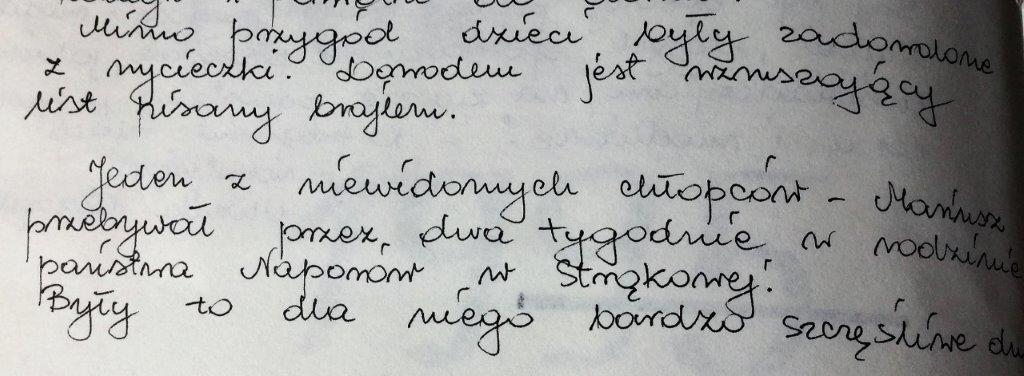 Mimo przygód dzieci były zadowolone
z wycieczki. Dowodem jest wzruszający
list pisany brajlem.
Jeden z niewidomych chłopców - Mariusz
przebywał przez dwa tygodnie w rodzinie
państwa Naporów w Strąkowej.
Były to dla niego bardzo szczęśliwe